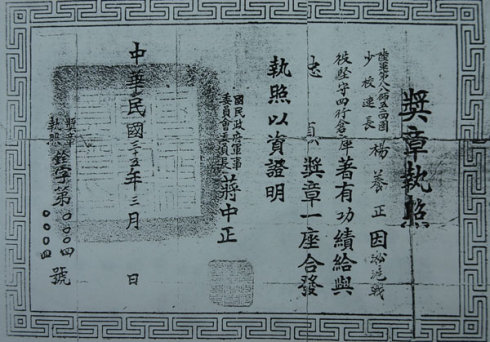 獎章執照
陸軍第八八師五二四團
少校連長 楊養正 因淞滬戰
役堅守四行倉庫著有功績給與
忠貞獎章一座合發
執照以資證明
國民政府軍事
委員會委員長 蔣中正
中華民國三十五年三月 日
獎章
執照 銓字第 〇〇〇四
〇〇〇四 號